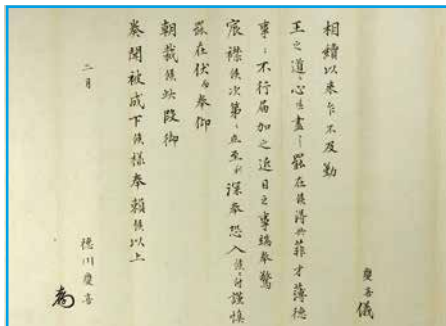 慶喜儀
相續以来乍不及勤
王之道ニ心を盡シ罷在候得共菲才薄徳
事々不行届加之近日之事端奉驚
宸襟候次第ニ立至り深奉恐入候ニ付謹慎
罷在伏而奉仰
朝裁候此段御
奏聞被成下候様奉頼候以上
二月
徳川慶喜